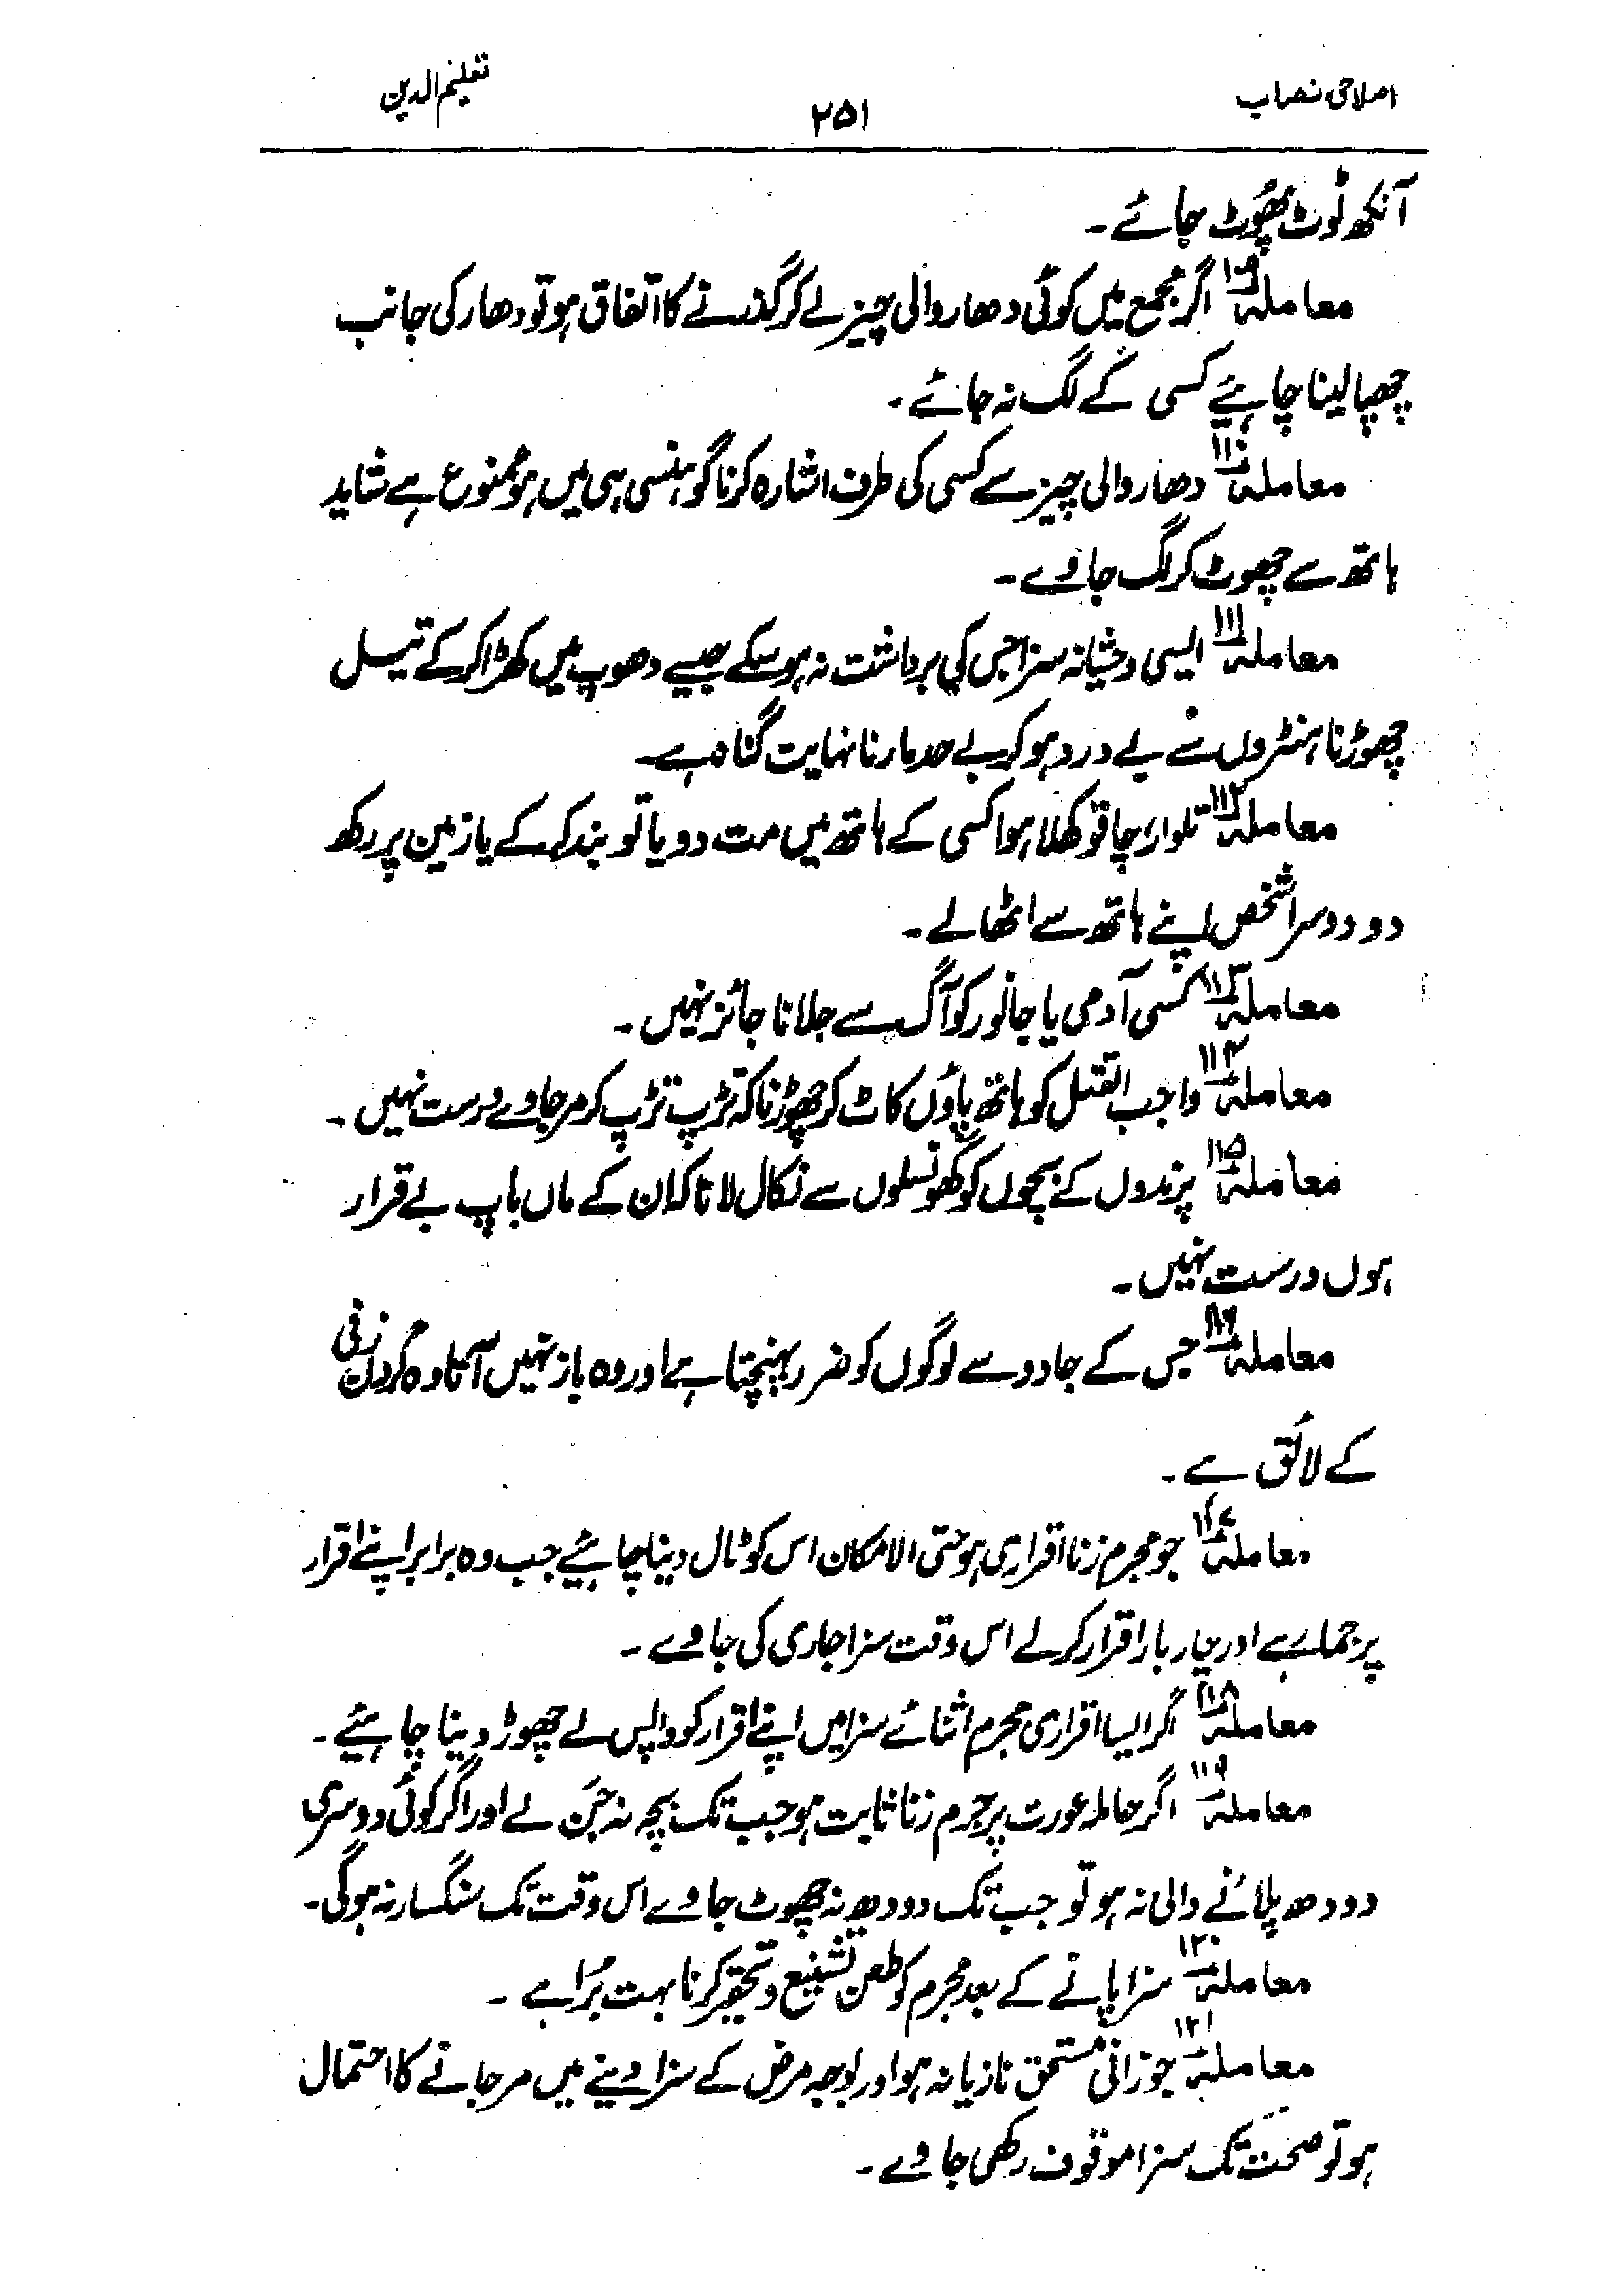 اصلاحی نصاب
۲۵۱
تعلیم الدین
آنکھ ٹوٹ پھوٹ جائے۔
معاملہ ۱۰۹ اگر مجمع میں کوئی دھار والی چیز لے کر گذرنے کا اتفاق ہو تو دھار کی جانب
چھپا لینا چاہیئے کسی کے لگ نہ جائے۔
معاملہ ۱۱۰ دھار والی چیز سے کسی کی طرف اشارہ کرنا گو ہنسی ہی میں ہو ممنوع ہے شاید
ہاتھ سے چھوٹ کر لگ جاوے۔
معاملہ ۱۱۱ ایسی وحشیانہ سزا جس کی برداشت نہ ہو سکے جیسے دھوپ میں کھڑا کر کے تیل
چھوڑنا ہنٹروں سے بے درد ہو کر بے حد مارنا نہایت گناہ ہے۔
معاملہ ۱۱۲ تلوار، چاقو کھلا ہوا کسی کے ہاتھ میں مت دو یا تو بند کر کے یا زمین پر رکھ
دو دوسرا شخص اپنے ہاتھ سے اٹھا لے۔
معاملہ ۱۱۳ کسی آدمی یا جانور کو آگ سے جلانا جائز نہیں۔
معاملہ ۱۱۴ واجب القتل کو ہاتھ پاؤں کاٹ کر چھوڑنا کہ تڑپ تڑپ کر مر جاوے درست نہیں۔
معاملہ ۱۱۵ پرندوں کے بچوں کو گھونسلوں سے نکال لانا کہ ان کے ماں باپ بے قرار
ہوں درست نہیں۔
معاملہ ۱۱۶ جس کے جادو سے لوگوں کو ضرر پہنچتا ہے اور وہ باز نہیں آتا وہ گردن زنی
کے لائق ہے۔
معاملہ ۱۱۷ جو مجرم زنا اقراری ہو حتی الامکان اس کو ٹال دینا چاہیئے جب وہ برابر اپنے اقرار
پر جما رہے اور چار بار اقرار کر لے اس وقت سزا جاری کی جاوے۔
معاملہ ۱۱۸ اگر ایسا اقراری مجرم اثنائے سزا میں اپنے اقرار کو واپس لے چھوڑ دینا چاہیئے۔
معاملہ ۱۱۹ اگر حاملہ عورت پر جرم زنا ثابت ہو جب تک بچہ نہ جَن لے اور اگر کوئی دوسری
دودھ پلانے والی نہ ہو تو جب تک دودھ نہ چھوٹ جاوے اس وقت تک سنگسار نہ ہوگی۔
معاملہ ۱۲۰ سزا پانے کے بعد مجرم کو طعن تشنیع و تحقیر کرنا بہت بُرا ہے۔
معاملہ ۱۲۱ جو زانی مستحق تازیانہ ہو اور بوجہ مرض کے سزا دینے میں مر جانے کا احتمال
ہو تو صحت تک سزا موقوف رکھی جاوے۔